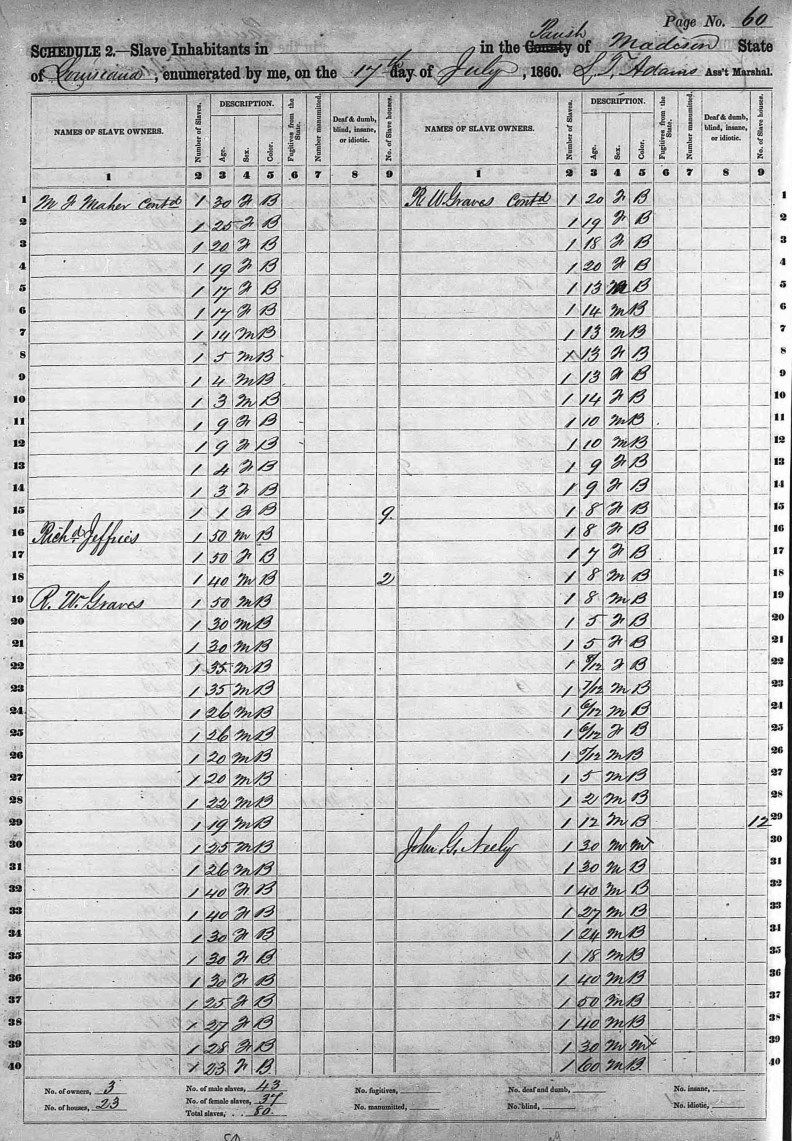 Page No. 60
SCHEDULE 2.—Slave Inhabitants in in the County Parish of Madison State
of Louisiana, enumerated by me, on the 17th day of July, 1860. L T Adams Ass't Marshal.
NAMES OF SLAVE OWNERS. Number of Slaves. DESCRIPTION. Age. Sex. Color. Fugitives from the State. Number manumitted. Deaf & dumb, blind, insane, or idiotic. No. of Slave houses.
1 2 3 4 5 6 7 8 9
1 M F Maher Contd 1 30 F B
2 1 25 F B
3 1 20 F B
4 1 19 F B
5 1 17 F B
6 1 17 F B
7 1 14 M B
8 1 5 M B
9 1 4 M B
10 1 3 M B
11 1 9 F B
12 1 9 F B
13 1 4 F B
14 1 3 F B
15 1 1 F B 9
16 Richd Jeffries 1 50 M B
17 1 50 F B
18 1 40 M B 2
19 R. W. Graves 1 50 M B
20 1 30 M B
21 1 30 M B
22 1 35 M B
23 1 35 M B
24 1 26 M B
25 1 26 M B
26 1 20 M B
27 1 20 M B
28 1 22 M B
29 1 19 M B
30 1 25 M B
31 1 26 M B
32 1 40 F B
33 1 40 F B
34 1 30 F B
35 1 30 F B
36 1 30 F B
37 1 25 F B
38 1 27 F B
39 1 28 F B
40 1 23 F B
NAMES OF SLAVE OWNERS. Number of Slaves. DESCRIPTION. Age. Sex. Color. Fugitives from the State. Number manumitted. Deaf & dumb, blind, insane, or idiotic. No. of Slave houses.
1 2 3 4 5 6 7 8 9
R W Graves Contd 1 20 F B 1
1 19 F B 2
1 18 F B 3
1 20 F B 4
1 13 M B 5
1 14 M B 6
1 13 M B 7
1 13 F B 8
1 13 F B 9
1 14 F B 10
1 10 M B 11
1 10 M B 12
1 9 F B 13
1 9 F B 14
1 8 F B 15
1 8 F B 16
1 7 F B 17
1 8 M B 18
1 8 M B 19
1 5 F B 20
1 5 F B 21
1 F B 22
1 7/12 M B 23
1 6/12 M B 24
1 6/12 F B 25
1 M B 26
1 5 M B 27
1 2 M B 28
1 12 M B 12 29
John G. Neely 1 30 M M 30
1 30 M B 31
1 40 M B 32
1 27 M B 33
1 24 M B 34
1 18 M B 35
1 40 M B 36
1 50 M B 37
1 40 M B 38
1 30 M M 39
1 60 M B 40
No. of owners, 3 No. of male slaves, 43 No. fugitives, No. deaf and dumb, No. insane,
No. of houses, 23 No. of female slaves, 37 No. manumitted, No. blind, No. idiotic,
Total slaves, 80